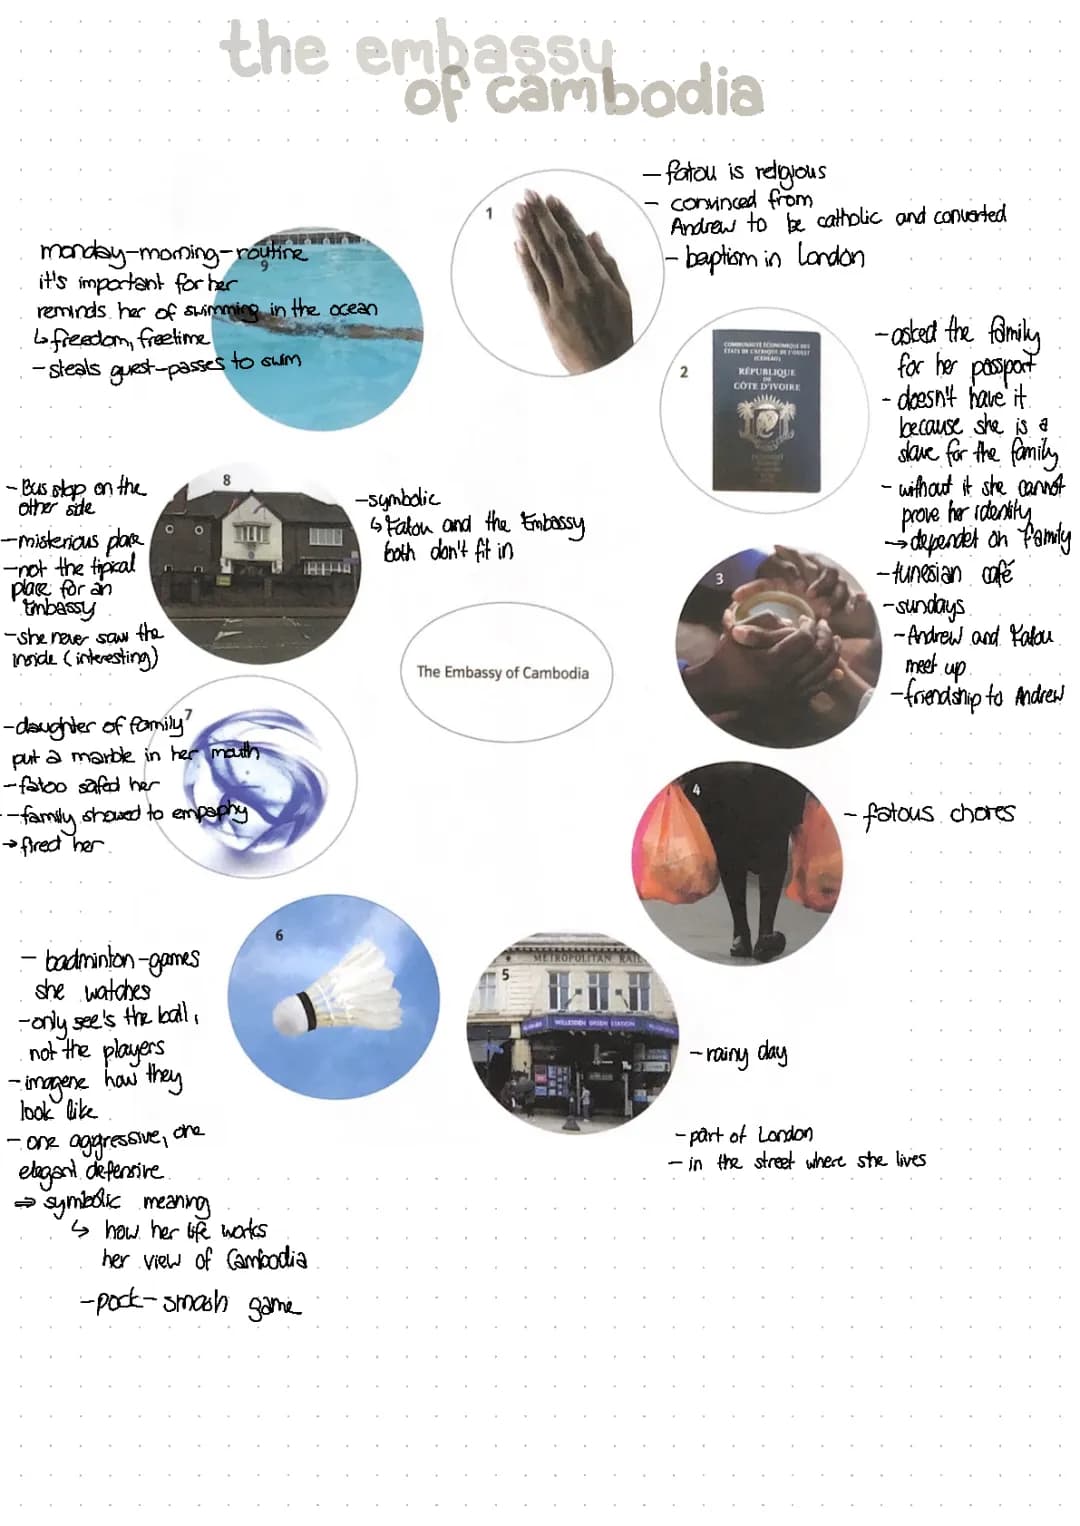 the embassy
of cambodia
1
- fatou is religious
- convinced from
Andrew to be catholic and converted
- baptism in London
monday-morning-routine
9
it's important for her
reminds her of swimming in the ocean
↳ freedom, freetime
- steals guest-passes to swim
2
COMMUNAUTÉ ÉCONOMIQUE DES
ÉTATS DE L'AFRIQUE DE L'OUEST
(CEDEAO)
RÉPUBLIQUE
DE
CÔTE D'IVOIRE
- asked the family
for her passport
- doesn't have it
because she is a
slave for the family
- without it she cannot
prove her identity
→ dependet on family
8
- Bus stop on the
other side
- misterious place
- not the tipical
place for an
Embassy
- she never saw the
inside (interesting)
- symbolic
↳ Fatou and the Embassy
both don't fit in
3
- tunesian café
- sundays
- Andrew and Fatou
meet up
- friendship to Andrew
The Embassy of Cambodia
7
- daughter of family
put a marble in her mouth
- fatoo safed her
- family showed to empaphy
→ fired her
4
- fatous chores
6
- badminton-games
she watches
- only see's the ball,
not the players
- imagene how they
look like
- one aggressive, one
elegant defensive
⇒ symbolic meaning
↳ how her life works
her view of Cambodia
- pock-smash game
5
METROPOLITAN RAIL
WILLESDEN GREEN STATION
- rainy day
- part of London
- in the street where she lives